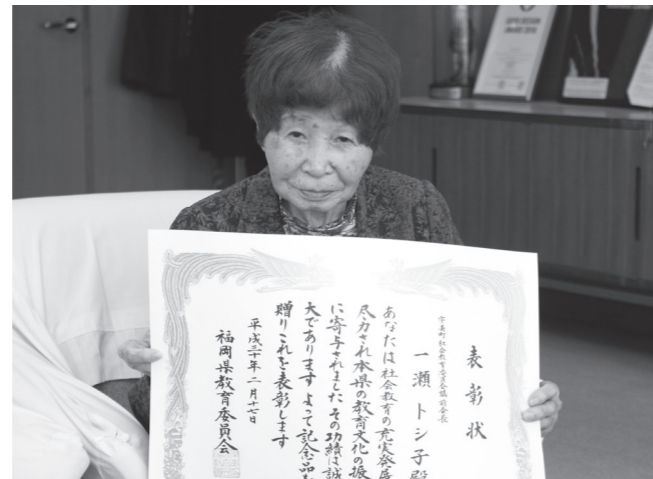 表彰状
宇美町社会教育委員会議前会長
一瀬トシ子殿
あなたは社会教育の充実発展
尽力され本県の教育文化の振
に寄与されましたその功績は誠
大でありますよって記念品を
贈りこれを表彰します
平成三十年二月十七日
福岡県教育委員会